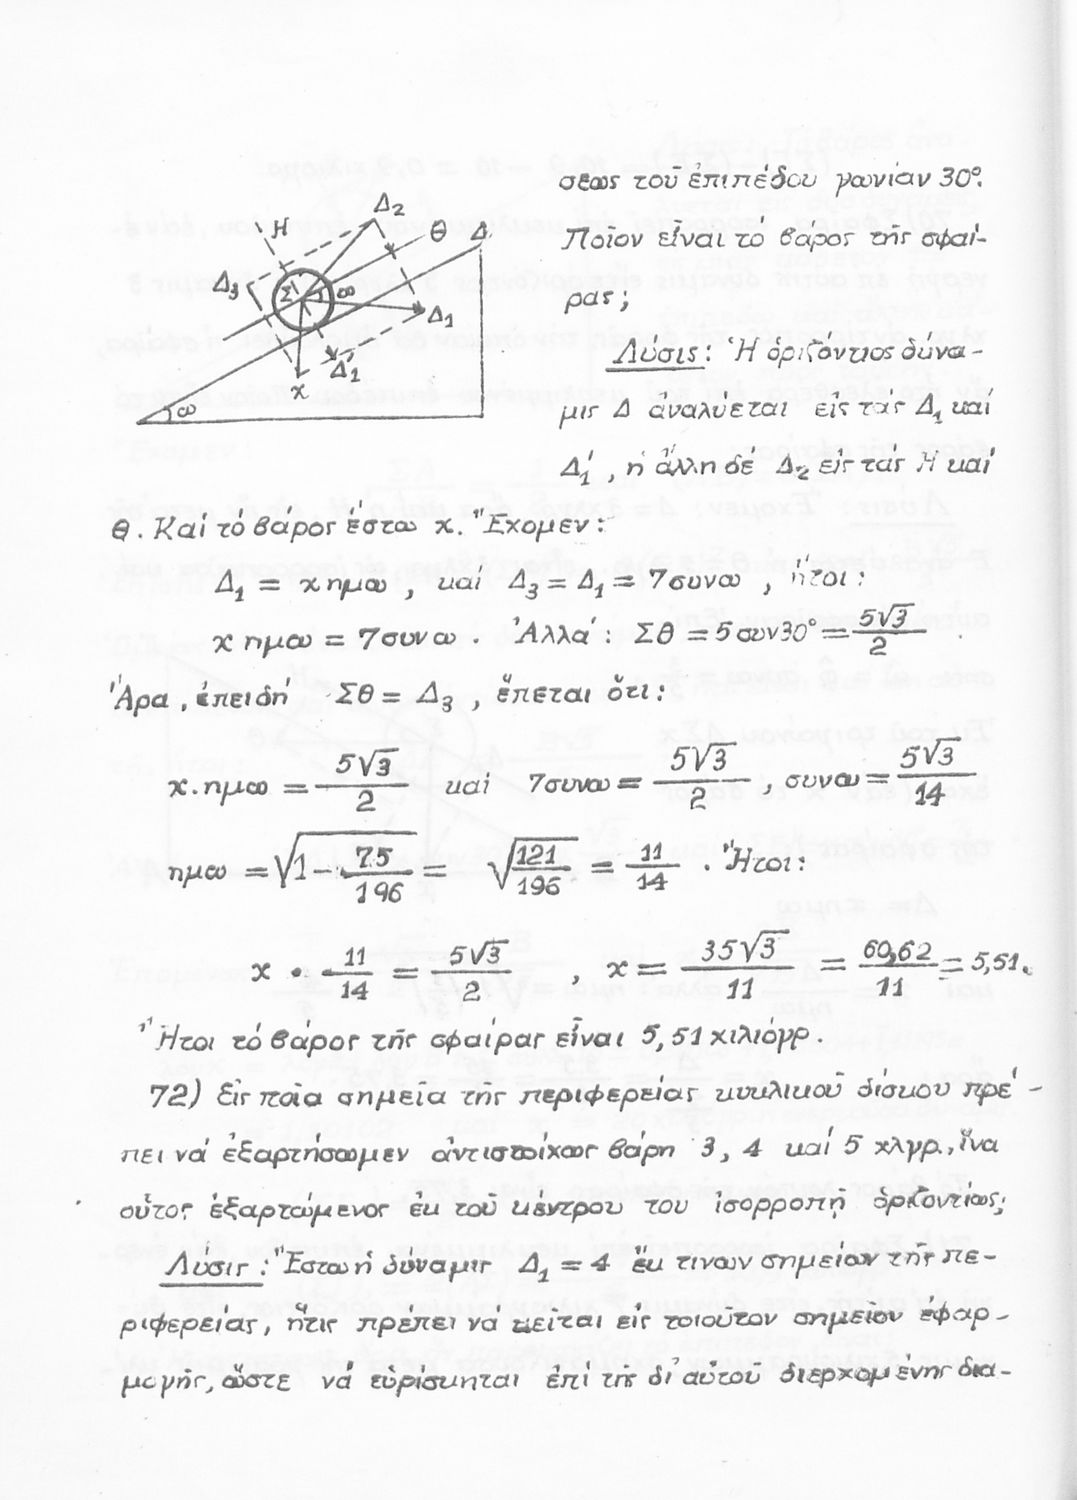 σεως τοῦ ἐπιπέδου γωνίαν 30°.
Ποῖον εἶναι τό βάρος τῆς σφαί-
ρας;
Λύσις: Ἡ ὁριζόντιος δύνα-
μις Δ ἀναλύεται εἰς τάς Δ₁ καί
Δ₁́ , ἡ ἄλλη δέ Δ₂ εἰς τάς Η καί
Η Δ₂ θ Δ
Δ₃ Σ ω Δ₁
Δ₁́
χ
ω
θ. Καί τό βάρος ἔστω χ. Ἔχομεν:
Δ₁ = χ ημω , καί Δ₃ = Δ₁ = 7συνω , ἤτοι:
χ ημω = 7συνω . Ἀλλά: Σθ = 5συν30° = 5√3/2 .
Ἄρα, ἐπειδή Σθ = Δ₃ , ἕπεται ὅτι:
χ.ημω = 5√3/2 καί 7συνω = 5√3/2 , συνω = 5√3/14
ημω = √(1 - 75/196) = √(121/196) = 11/14 . Ἤτοι:
χ · 11/14 = 5√3/2 , χ = 35√3/11 = 60,62/11 = 5,51.
Ἤτοι τό βάρος τῆς σφαίρας εἶναι 5,51 χιλιόγρ.
72) Εἰς ποῖα σημεῖα τῆς περιφερείας κυκλικοῦ δίσκου πρέ-
πει νά ἐξαρτήσωμεν ἀντιστοίχως βάρη 3, 4 καί 5 χλγρ., ἵνα
οὗτος ἐξαρτώμενος ἐκ τοῦ κέντρου του ἰσορροπῇ ὁριζοντίως;
Λύσις: Ἔστω ἡ δύναμις Δ₁ = 4 ἔκ τινων σημείων τῆς πε-
ριφερείας, ἥτις πρέπει νά κεῖται εἰς τοιοῦτον σημεῖον ἐφαρ-
μογῆς, ὥστε νά εὑρίσκηται ἐπί τῆς δι' αὐτοῦ διερχομένης δια-